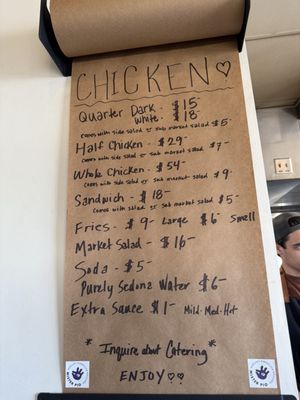 CHICKEN ♡
Quarter Dark - $15
White - $18-
comes with side salad or sub market salad $5-
Half Chicken - $29-
comes with side salad or sub market salad $7-
Whole Chicken - $54-
comes with side salad or sub market salad $9-
Sandwich - $18-
comes with salad or sub market salad $5-
Fries - $9- Large $6- Small
Market Salad - $16-
Soda - $5-
Purely Sedona Water $6-
Extra Sauce $1- Mild-Med-Hot
*Inquire about Catering*
ENJOY ♡♡
MISTER PIO
MISTER PIO